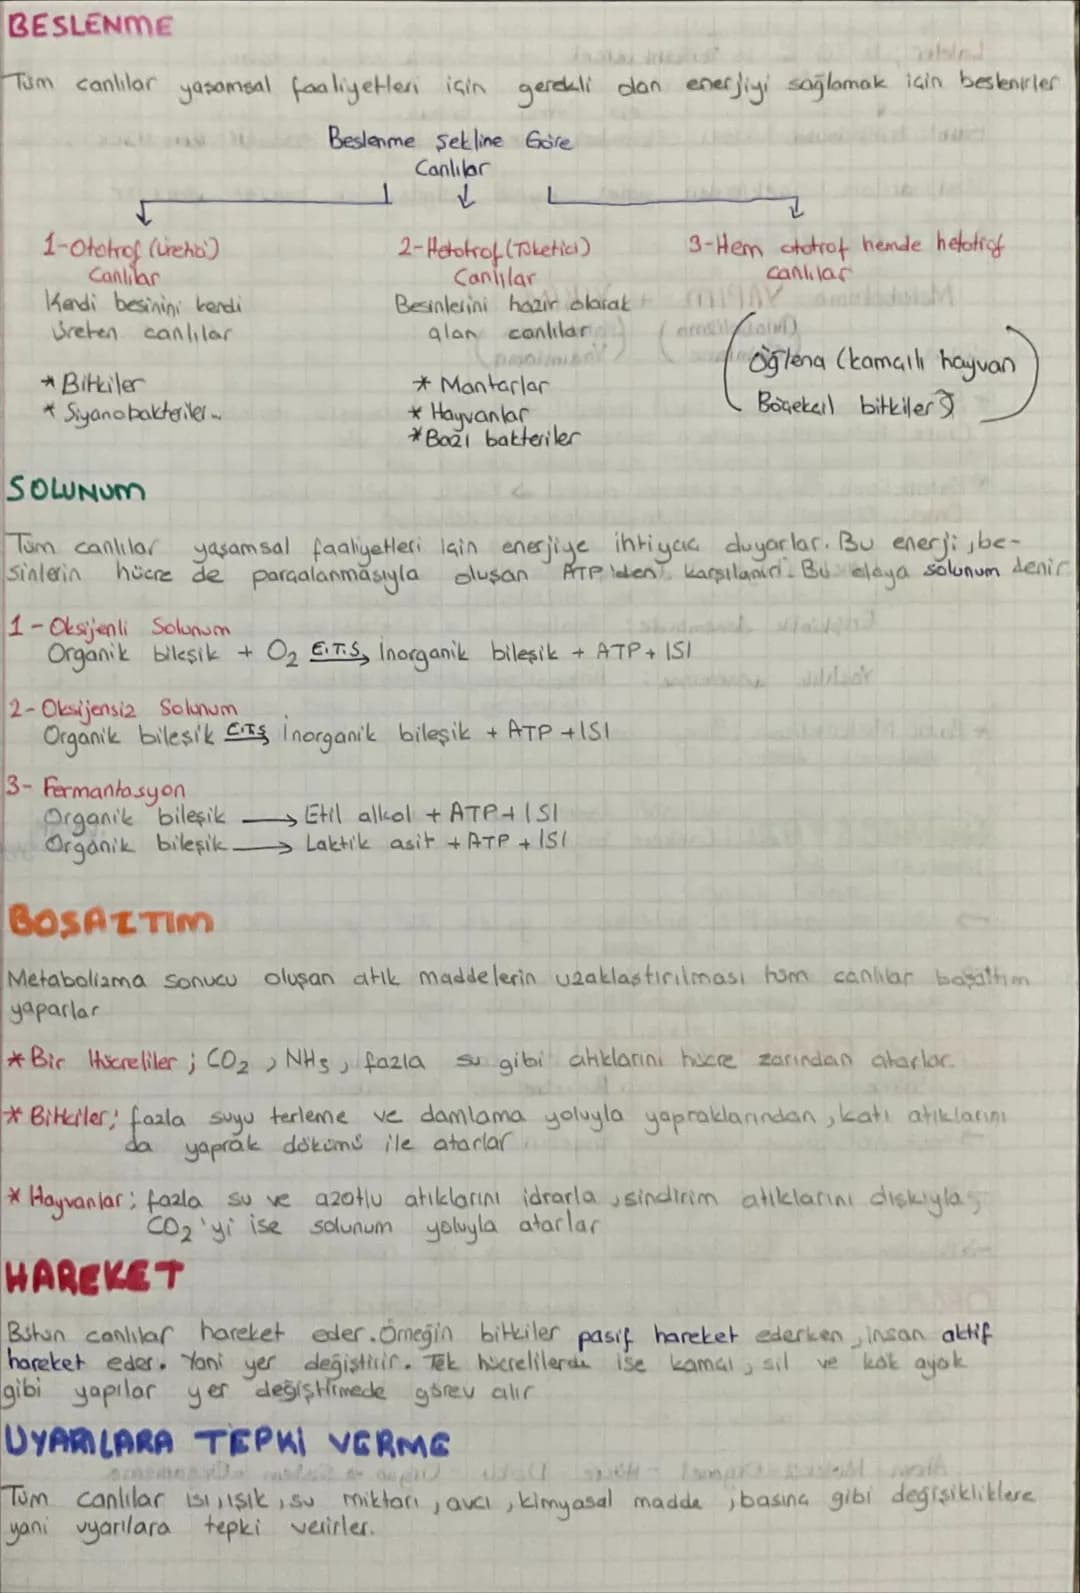 BESLENME
Tüm canlılar yaşamsal faaliyetleri için gerekli olan enerjiyi sağlamak için beslenirler
Beslenme Şekline Göre
Canlılar
1-Ototrof (Üretici)
Canlılar
Kendi besinini kendi
üreten canlılar
* Bitkiler
* Siyanobakteriler..
2-Hetotrof (Tüketici)
Canlılar
Besinlerini hazır olarak
alan canlılar
* Mantarlar
* Hayvanlar
* Bazı bakteriler
3-Hem ototrof hemde hetotrof
canlılar
Öğlena (kamçılı hayvan
Böcekçil bitkiler)
SOLUNUM
Tüm canlılar yaşamsal faaliyetleri için enerjiye ihtiyaç duyarlar. Bu enerji, be-
sinlerin hücre de parçalanmasıyla oluşan ATP'den karşılanır. Bu olaya solunum denir
1- Oksijenli Solunum
Organik bileşik + O2 E.T.S İnorganik bileşik + ATP + ISI
2- Oksijensiz Solunum
Organik bileşik E.T.S İnorganik bileşik + ATP + ISI
3- Fermantasyon
Organik bileşik → Etil alkol + ATP + ISI
Organik bileşik → Laktik asit + ATP + ISI
BOŞALTIM
Metabolizma sonucu oluşan atık maddelerin uzaklaştırılması tüm canlılar boşaltım
yaparlar
* Bir Hücreliler ; CO2 , NH3 , fazla su gibi atıklarını hücre zarından atarlar.
* Bitkiler; fazla suyu terleme ve damlama yoluyla yapraklarından , katı atıklarını
da yaprak dökümü ile atarlar
* Hayvanlar; fazla su ve azotlu atıklarını idrarla , sindirim atıklarını dışkıyla,
CO2'yi ise solunum yoluyla atarlar
HAREKET
Bütün canlılar hareket eder. Örneğin bitkiler pasif hareket ederken , insan aktif
hareket eder. Yani yer değiştirir. Tek hücrelilerde ise kamçı , sil ve kök ayak
gibi yapılar yer değiştirmede görev alır
UYARILARA TEPKİ VERME
Tüm canlılar ısı , ışık , su miktarı , avcı , kimyasal madde , basınç gibi değişikliklere
yani uyarılara tepki verirler.